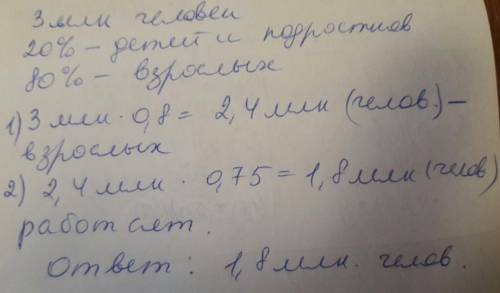 3 млн человек
20% - детей и подростков
80% - взрослых
1) 3 млн · 0,8 = 2,4 млн (челов.) -
взрослых
2) 2,4 млн · 0,75 = 1,8 млн (челов)
работает.
Ответ: 1,8 млн. челов.